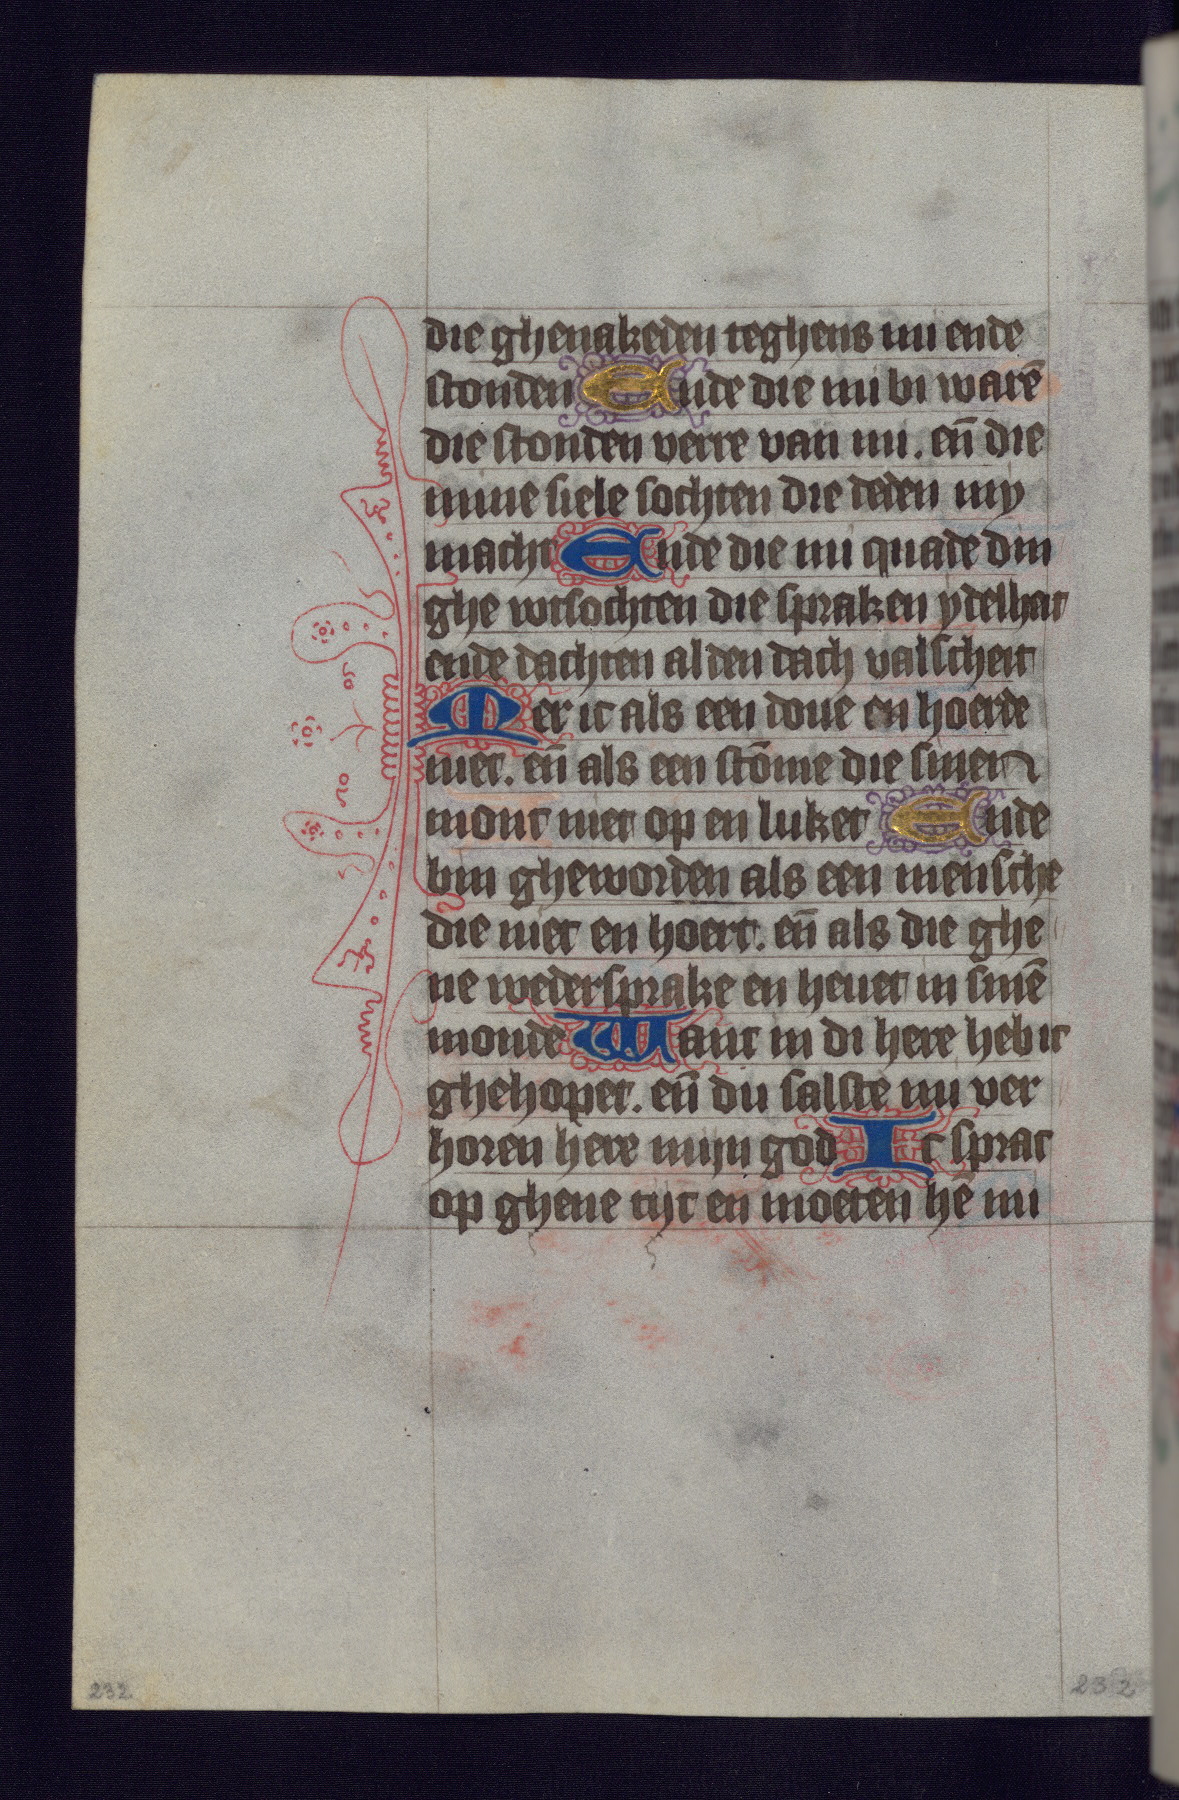 die ghenakeden teghens mi ende
stonden Ende die mi bi warē
die stonden verre van mi. eñ die
mine siele sochten die deden my
macht Ende die mi quade din
ghe wtsochten die spraken ydelheit
ende dachten alden dach valscheit
Mer ic als een doue en hoerde
niet. eñ als een stōme die sinen
mont niet op en luket Ende
bin gheworden als een mensche
die niet en hoert. eñ als die ghe
ne wedersprake en heuet in sinē
monde Want in di here heb ic
ghehopet. eñ du salste mi ver
horen here mijn god Ic sprac
op ghene tijt en moeten hē mi
232 232